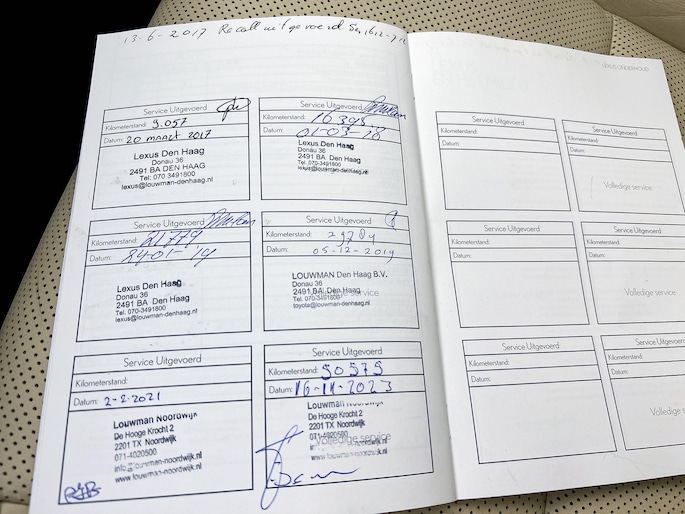 13-6-2017 Recall uitgevoerd
LEXUS ONDERHOUD
Service Uitgevoerd
Kilometerstand: 9.057
Datum: 20 maart 2017
Lexus Den Haag
Donau 36
2491 BA DEN HAAG
Tel. 070 3491800
lexus@louwman-denhaag.nl
Service Uitgevoerd
Kilometerstand: 16393
Datum: 01-03-18
Lexus Den Haag
Donau 36
2491 BA Den Haag
Tel. 070-3491800
lexus@louwman-denhaag.nl
Service Uitgevoerd
Kilometerstand:
Datum: 24-01-'19
Lexus Den Haag
Donau 36
2491 BA Den Haag
Tel. 070-3491800
lexus@louwman-denhaag.nl
Service Uitgevoerd
Kilometerstand:
Datum: 05-12-2019
LOUWMAN Den Haag B.V.
Donau 36
2491 BA Den Haag
Volledige service
Tel. 070-3491800
toyota@louwman-denhaag.nl
Service Uitgevoerd
Kilometerstand:
Datum: 2-2-2021
Louwman Noordwijk
De Hooge Krocht 2
2201 TX Noordwijk
071-4020500
info@louwman-noordwijk.nl
www.louwman-noordwijk.nl
Service Uitgevoerd
Kilometerstand: 50575
Datum: 16-11-2023
Louwman Noordwijk
De Hooge Krocht 2
2201 TX Noordwijk
071-4020500
Volledige service
info@louwman-noordwijk.nl
www.louwman-noordwijk.nl
Service Uitgevoerd
Kilometerstand:
Datum:
Service Uitgevoerd
Kilometerstand:
Datum:
Volledige service
Service Uitgevoerd
Kilometerstand:
Datum:
Service Uitgevoerd
Kilometerstand:
Datum:
Volledige service
Service Uitgevoerd
Kilometerstand:
Datum:
Service Uitgevoerd
Kilometerstand:
Datum:
Volledige service